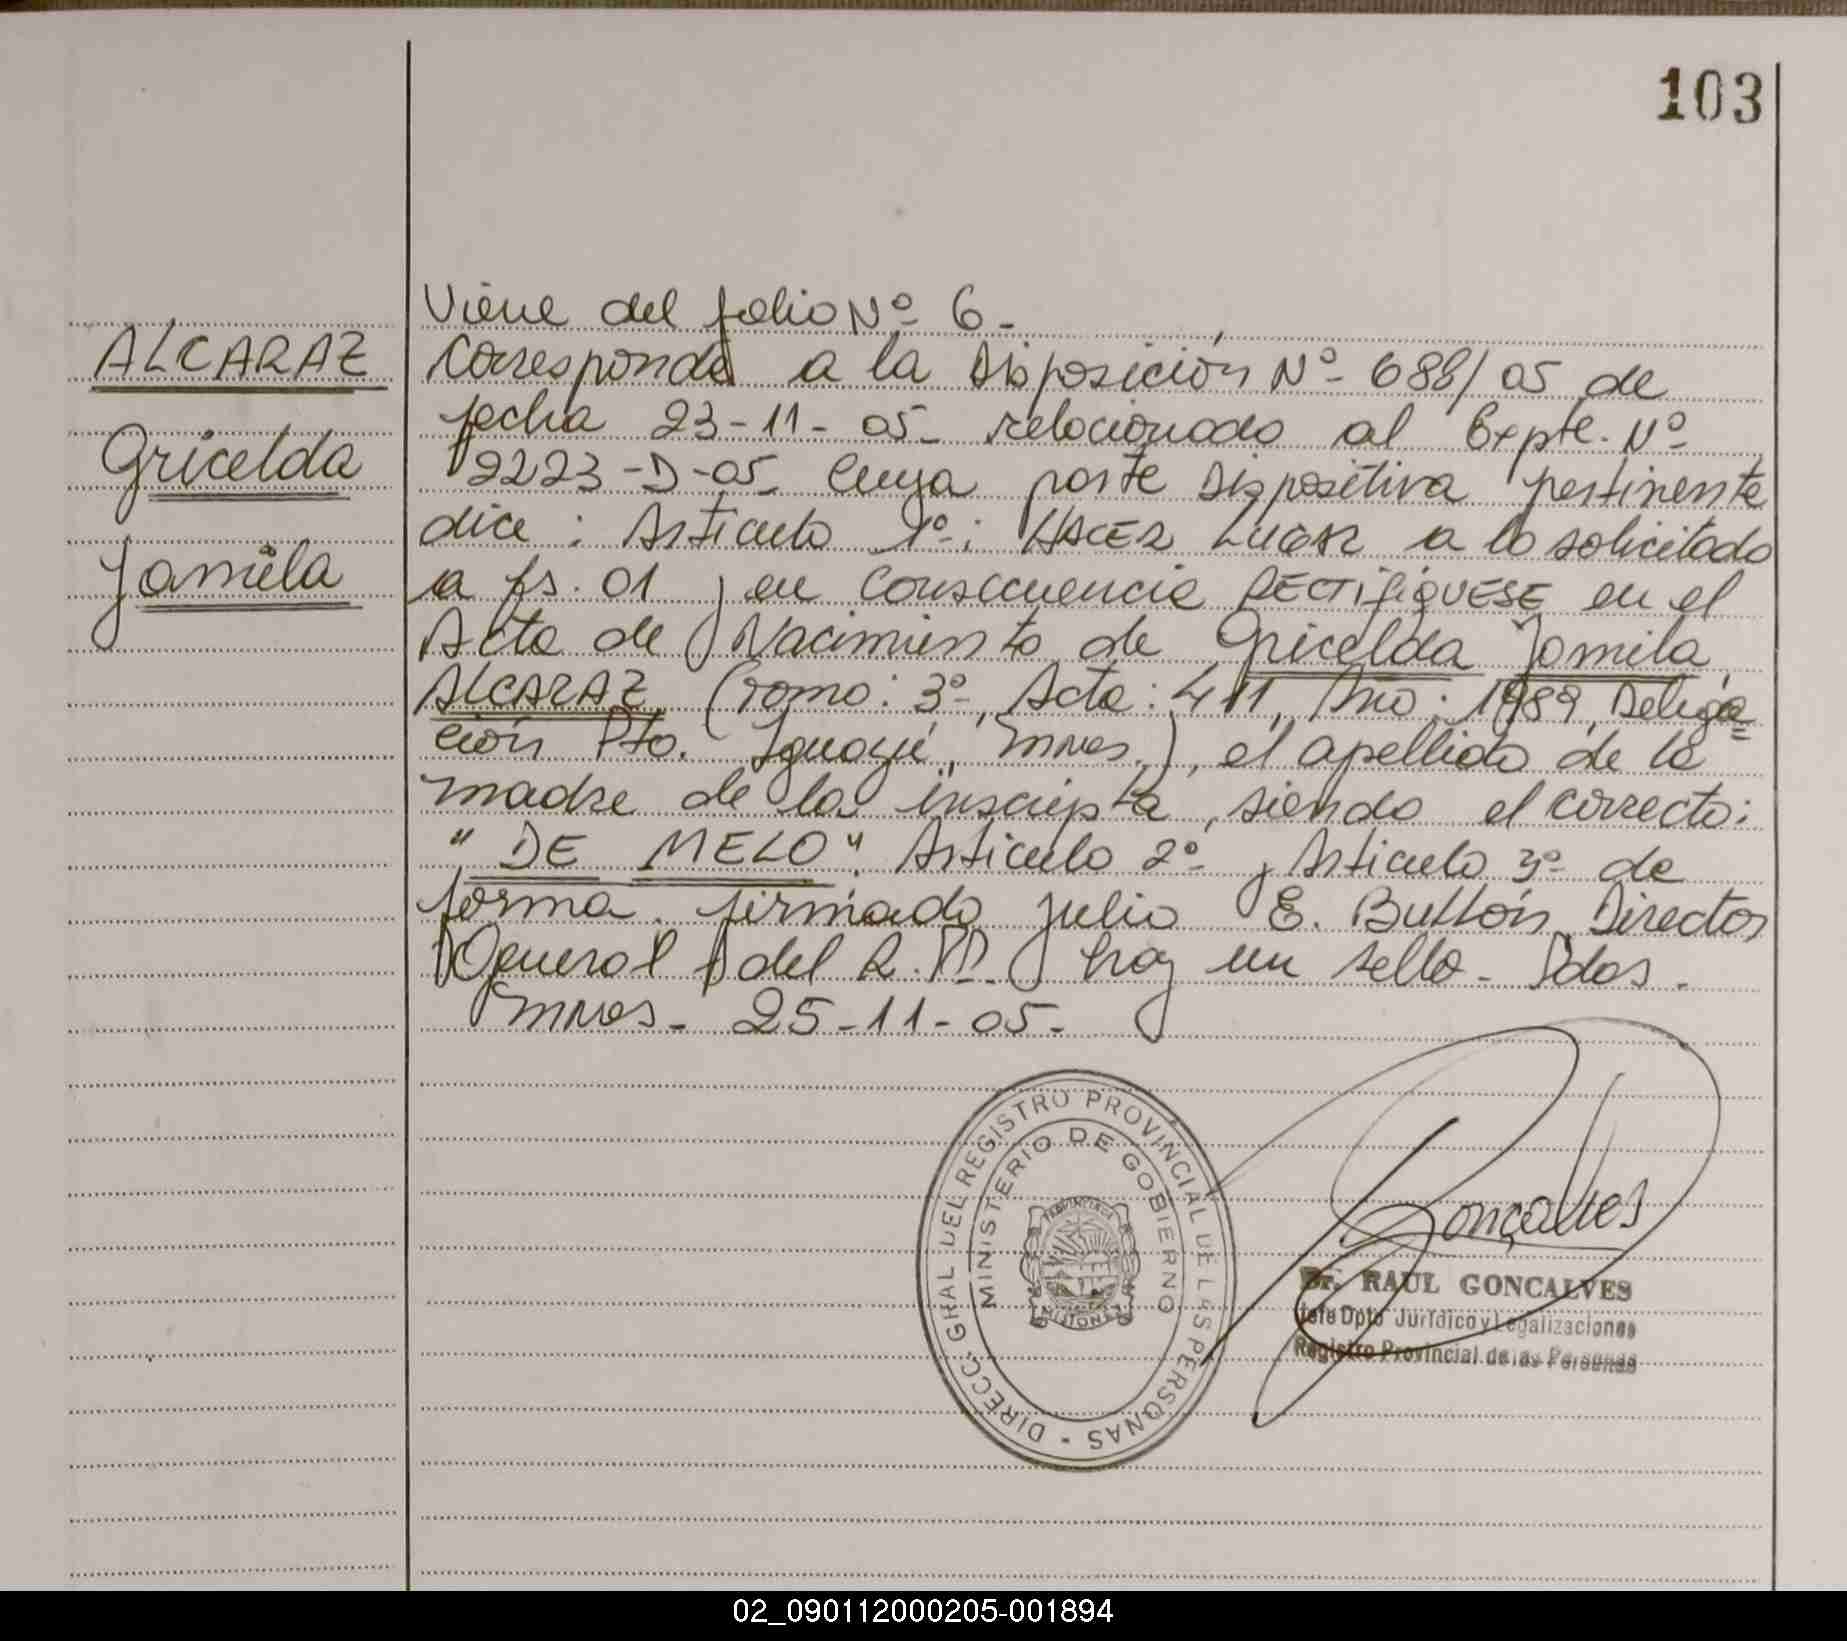 103
ALCARAZ
Gricelda
Jamila
Viene del folio Nº 6-
Corresponde a la Disposición Nº 688/05 de
fecha 23-11-05- relacionado al Expte. Nº
2223-D-05- Cuya parte Dispositiva pertinente
dice: Artículo 1º: HACER LUGAR a lo solicitado
a fs. 01 y en consecuencia RECTIFIQUESE en el
Acta de Nacimiento de Gricelda Jamila
ALCARAZ (Tomo: 3º, Acta: 411, Año: 1989, Delega=
ción Pto. Iguazú, Mnes.), el apellido de la
madre de la inscripta, siendo el correcto:
"DE MELO". Artículo 2º y Artículo 3º de
forma. firmado Julio E. Butlón Director
General del R.P.P. hay un sello- Pdas.
Mnes- 25-11-05-
DIRECC. GRAL DEL REGISTRO PROVINCIAL DE LAS PERSONAS -
MINISTERIO DE GOBIERNO
PROVINCIA DE
MISIONES
Gonçalves
Dr. RAUL GONCALVES
Jefe Dpto Jurídico y Legalizaciones
Registro Provincial de las Personas
02_090112000205-001894